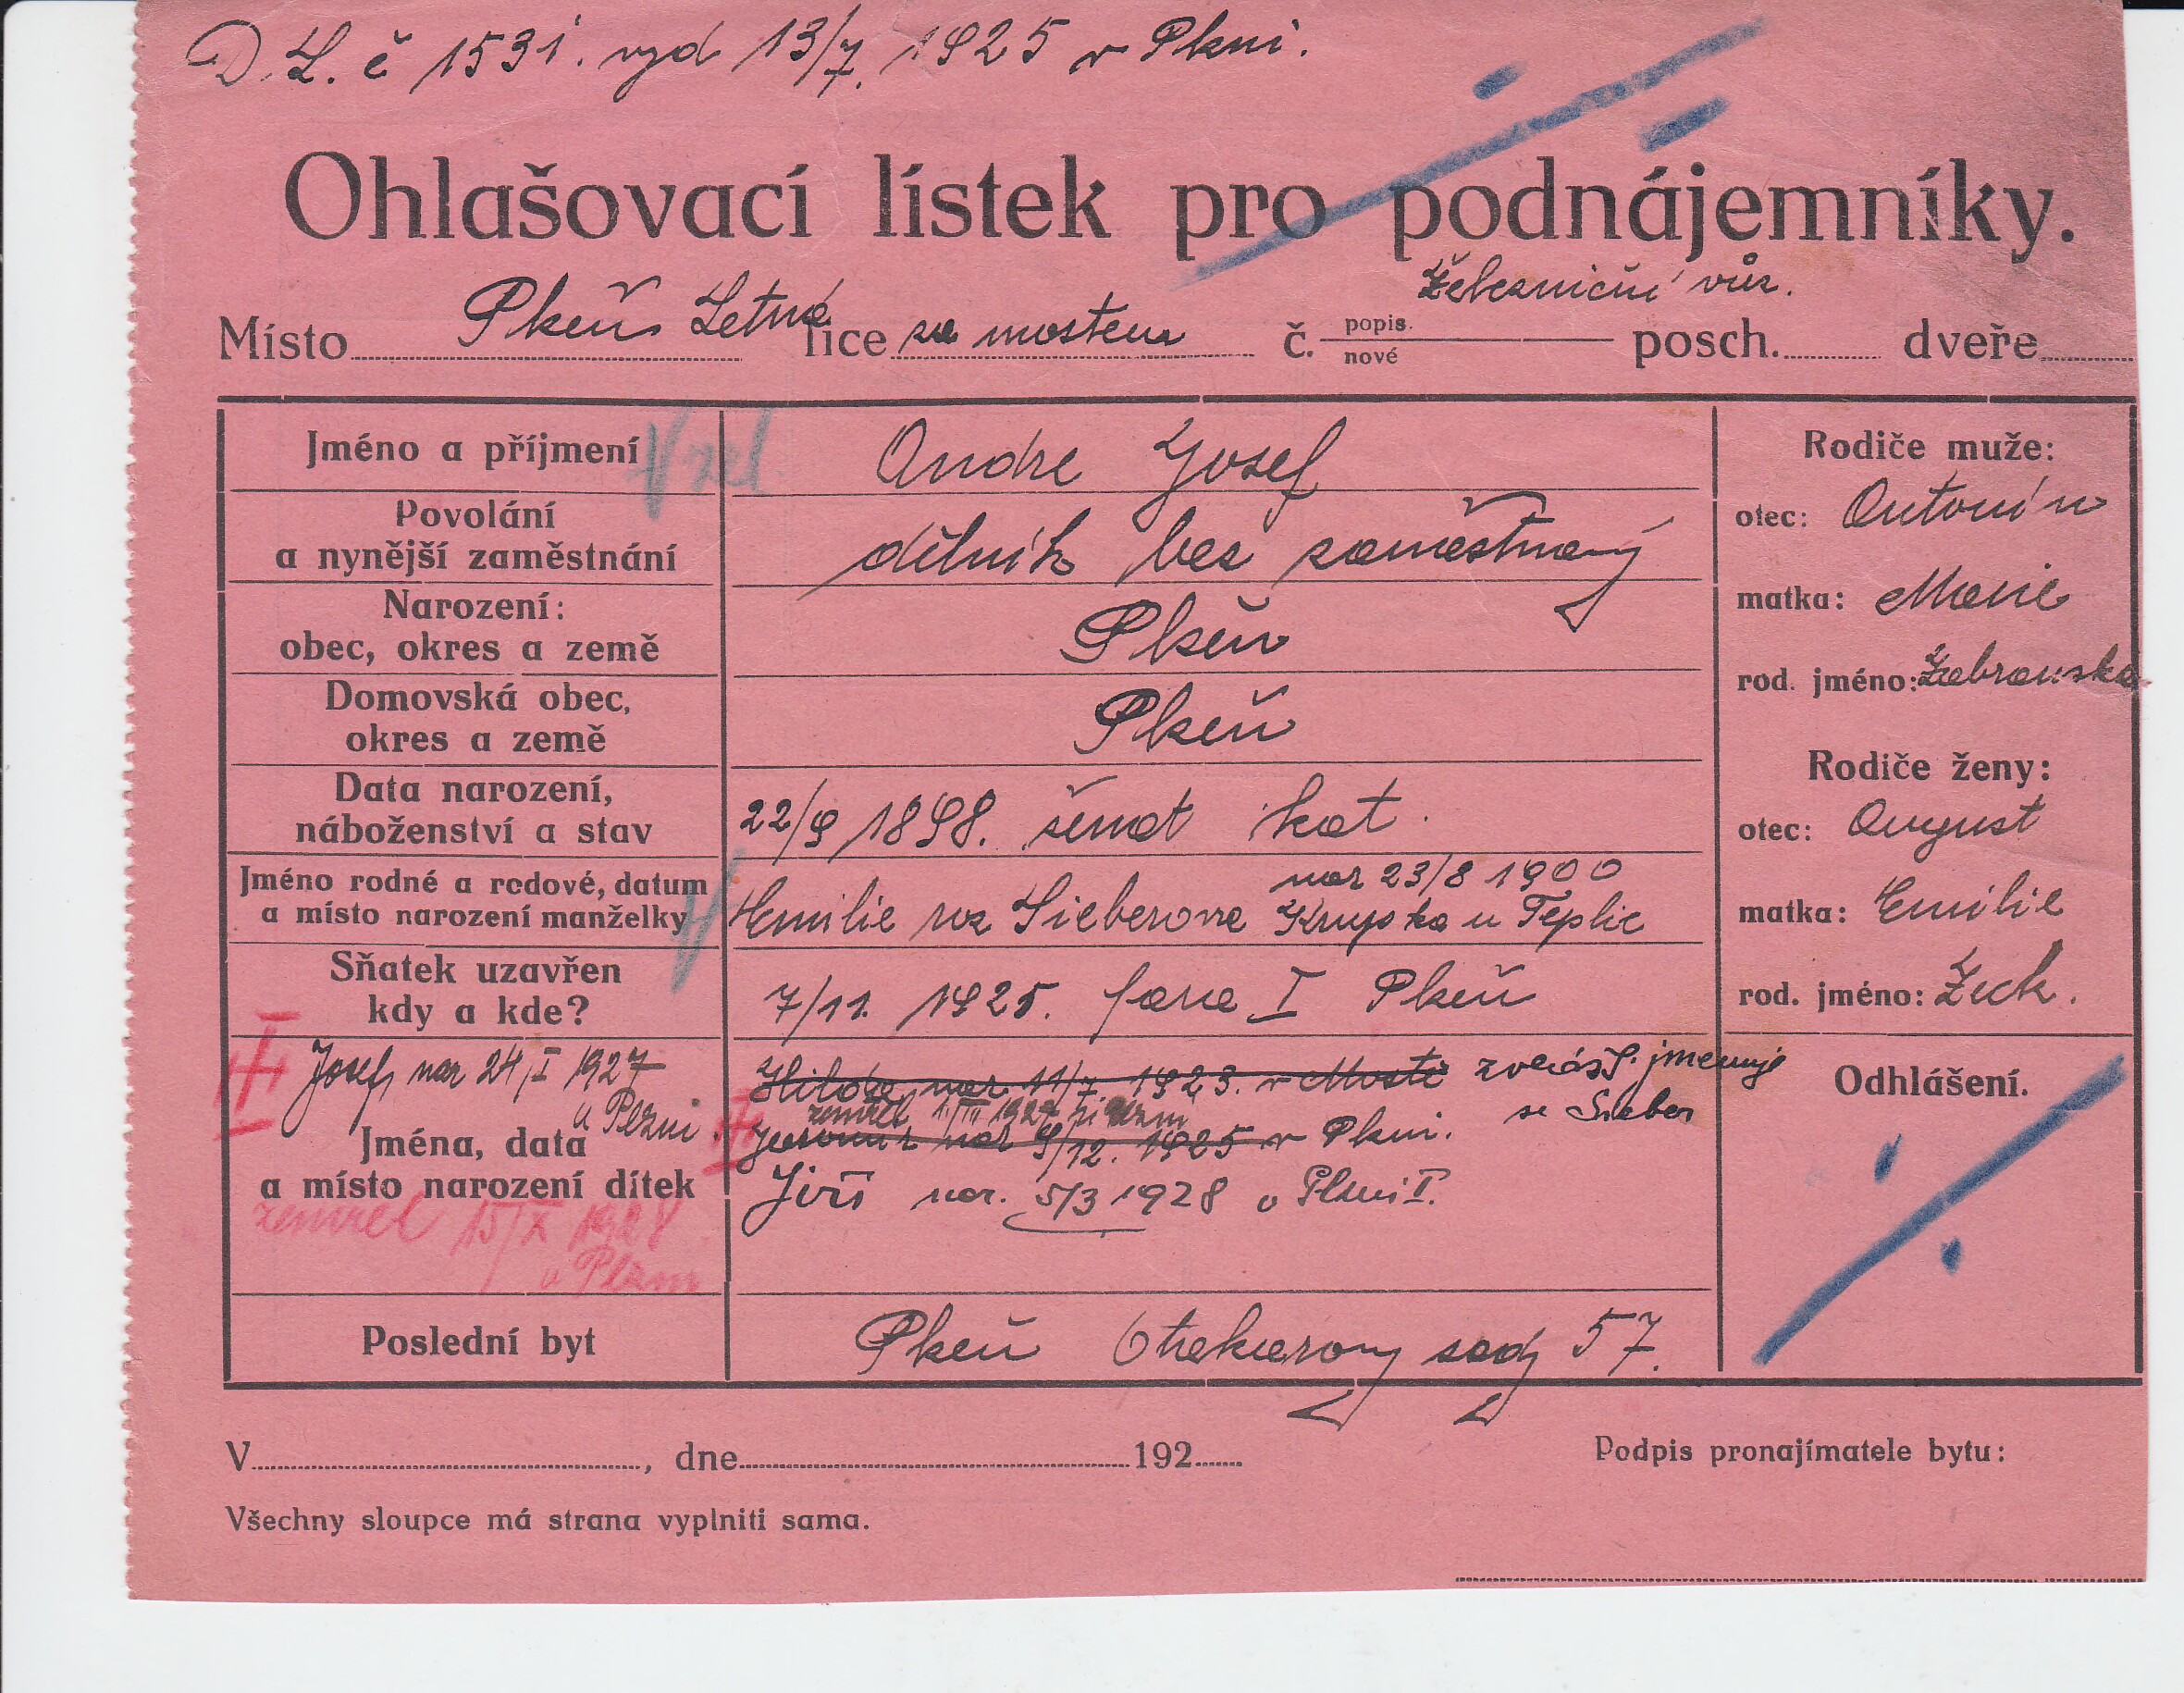 D. L. č 1531. vyd 13/7. 1925 v Plzni.
Ohlašovací lístek pro podnájemníky.
železniční vůz.
Místo Plzeň Letná lice za mostem č. popis. nové posch. dveře
Jméno a příjmení Vzel. Andre Josef
Povolání
a nynější zaměstnání dělník bez zaměstnaný
Narození:
obec, okres a země Plzeň
Domovská obec,
okres a země Plzeň
Data narození,
náboženství a stav 22/9 1898. ženat kat.
Jméno rodné a rodové, datum
a místo narození manželky nar 23/8 1900
Emilie roz Sieberova Krupka u Teplic
Sňatek uzavřen
kdy a kde? 7/11. 1925. fara I Plzeň
Josef nar 24/I 1927
v Plzni
Jména, data
a místo narození dítek
zemřel 15/X 1928
v Plzni
Hilda nar. 11/7. 1923. v Mostě zvlášť. jmenuje
se Sieber
zemřel 1927 Plzni
Jaromír nar 9/12. 1925 v Plzni.
Jiří nar. 5/3 1928 v Plzni I.
Poslední byt Plzeň sady 57.
Rodiče muže:
otec: Antonín
matka: Marie
rod. jméno: Zabranska
Rodiče ženy:
otec: August
matka: Emilie
rod. jméno: Zeck.
Odhlášení.
V , dne 192
Podpis pronajímatele bytu:
Všechny sloupce má strana vyplniti sama.